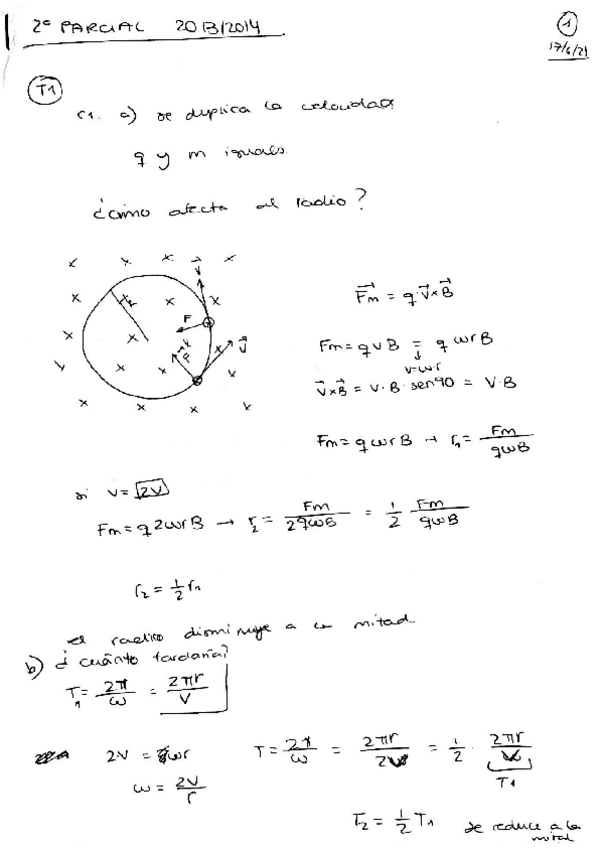 2º PARCIAL 2013/2014
1
17/6/21
T1
C1. a) se duplica la velocidad.
q y m iguales.
¿cómo afecta al radio?
x x x x
v⃗
x x x
r
F
x x x
F
v⃗
x x x
x x x x
F⃗m = q·v⃗×B⃗
Fm = qvB = q ωrB
v=ω·r
v⃗×B⃗ = v·B·sen90 = V·B
Fm = qωrB → r₁ = Fm / qωB
si v = 2v
Fm = q2ωrB → r₂ = Fm / 2qωB = 1/2 Fm / qωB
r₂ = 1/2 r₁
el radio disminuye a la mitad
b) ¿cuánto tardaría?
T₁ = 2π/ω = 2πr/v
2v = ωr
T = 2π/ω = 2πr/2v = 1/2 · 2πr/v
T₁
ω = 2v/r
T₂ = 1/2 T₁ se reduce a la mitad